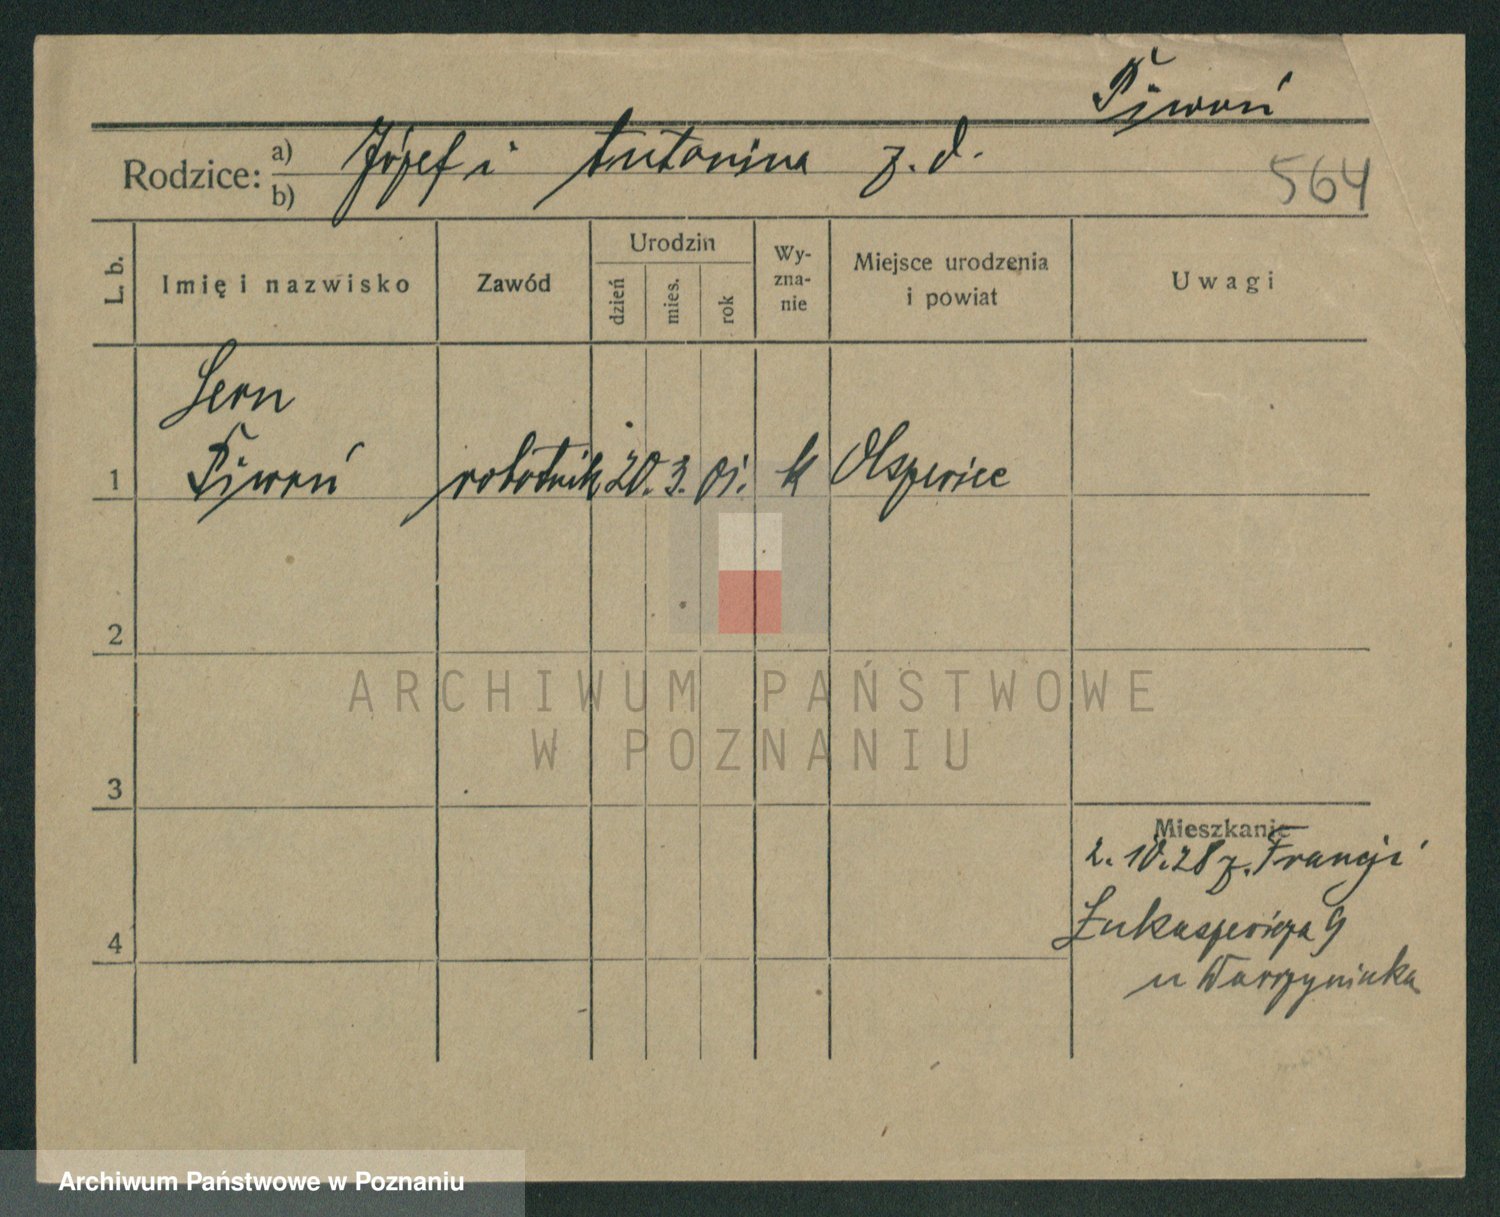 Piwoń
Rodzice: a) b) Józef i Antonina z. d.
564
L. b.
Imię i nazwisko
Zawód
Urodzin
dzień
mies.
rok
Wy-
zna-
nie
Miejsce urodzenia
i powiat
Uwagi
Leon
1 Piwoń robotnik 20. 3. 01. k Olszewice
2
3
4
Mieszkanie
2. 10. 28 z. Francji
Łukaszewicza 9
u Warzyniaka
ARCHIWUM PAŃSTWOWE
W POZNANIU
Archiwum Państwowe w Poznaniu